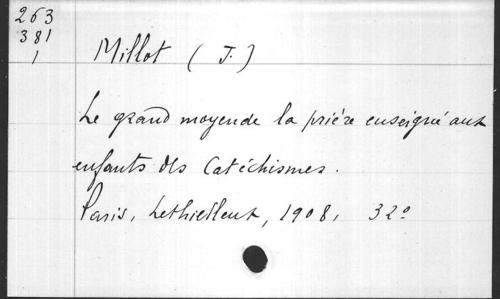 263
381
1
Millot (J.)
Le grand moyen de la prière enseigné aux
enfants des Catéchismes.
Paris, Lethielleux, 1908, 32º